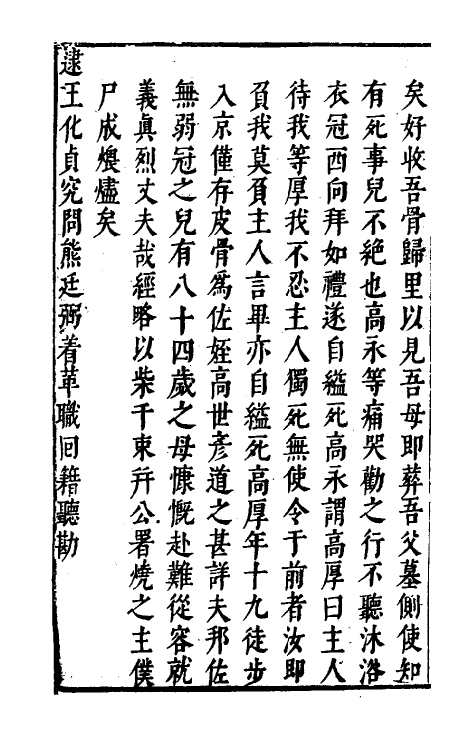 矣好收吾骨歸里以見吾母即葬吾父墓側使知
有死事兒不絶也高永等痛哭勸之行不聽沐浴
衣冠西向拜如禮遂自縊死高永謂高厚曰主人
待我等厚我不忍主人獨死無使令于前者汝即
負我莫負主人言畢亦自縊死高厚年十九徒步
入京僅存皮骨爲佐姪高世彥道之甚詳夫邦佐
無弱冠之兒有八十四歲之母慷慨赴難從容就
義眞烈丈夫哉經略以柴千束幷公署燒之主僕
尸成煨燼矣
逮王化貞究問熊廷弼着革職回籍聽勘